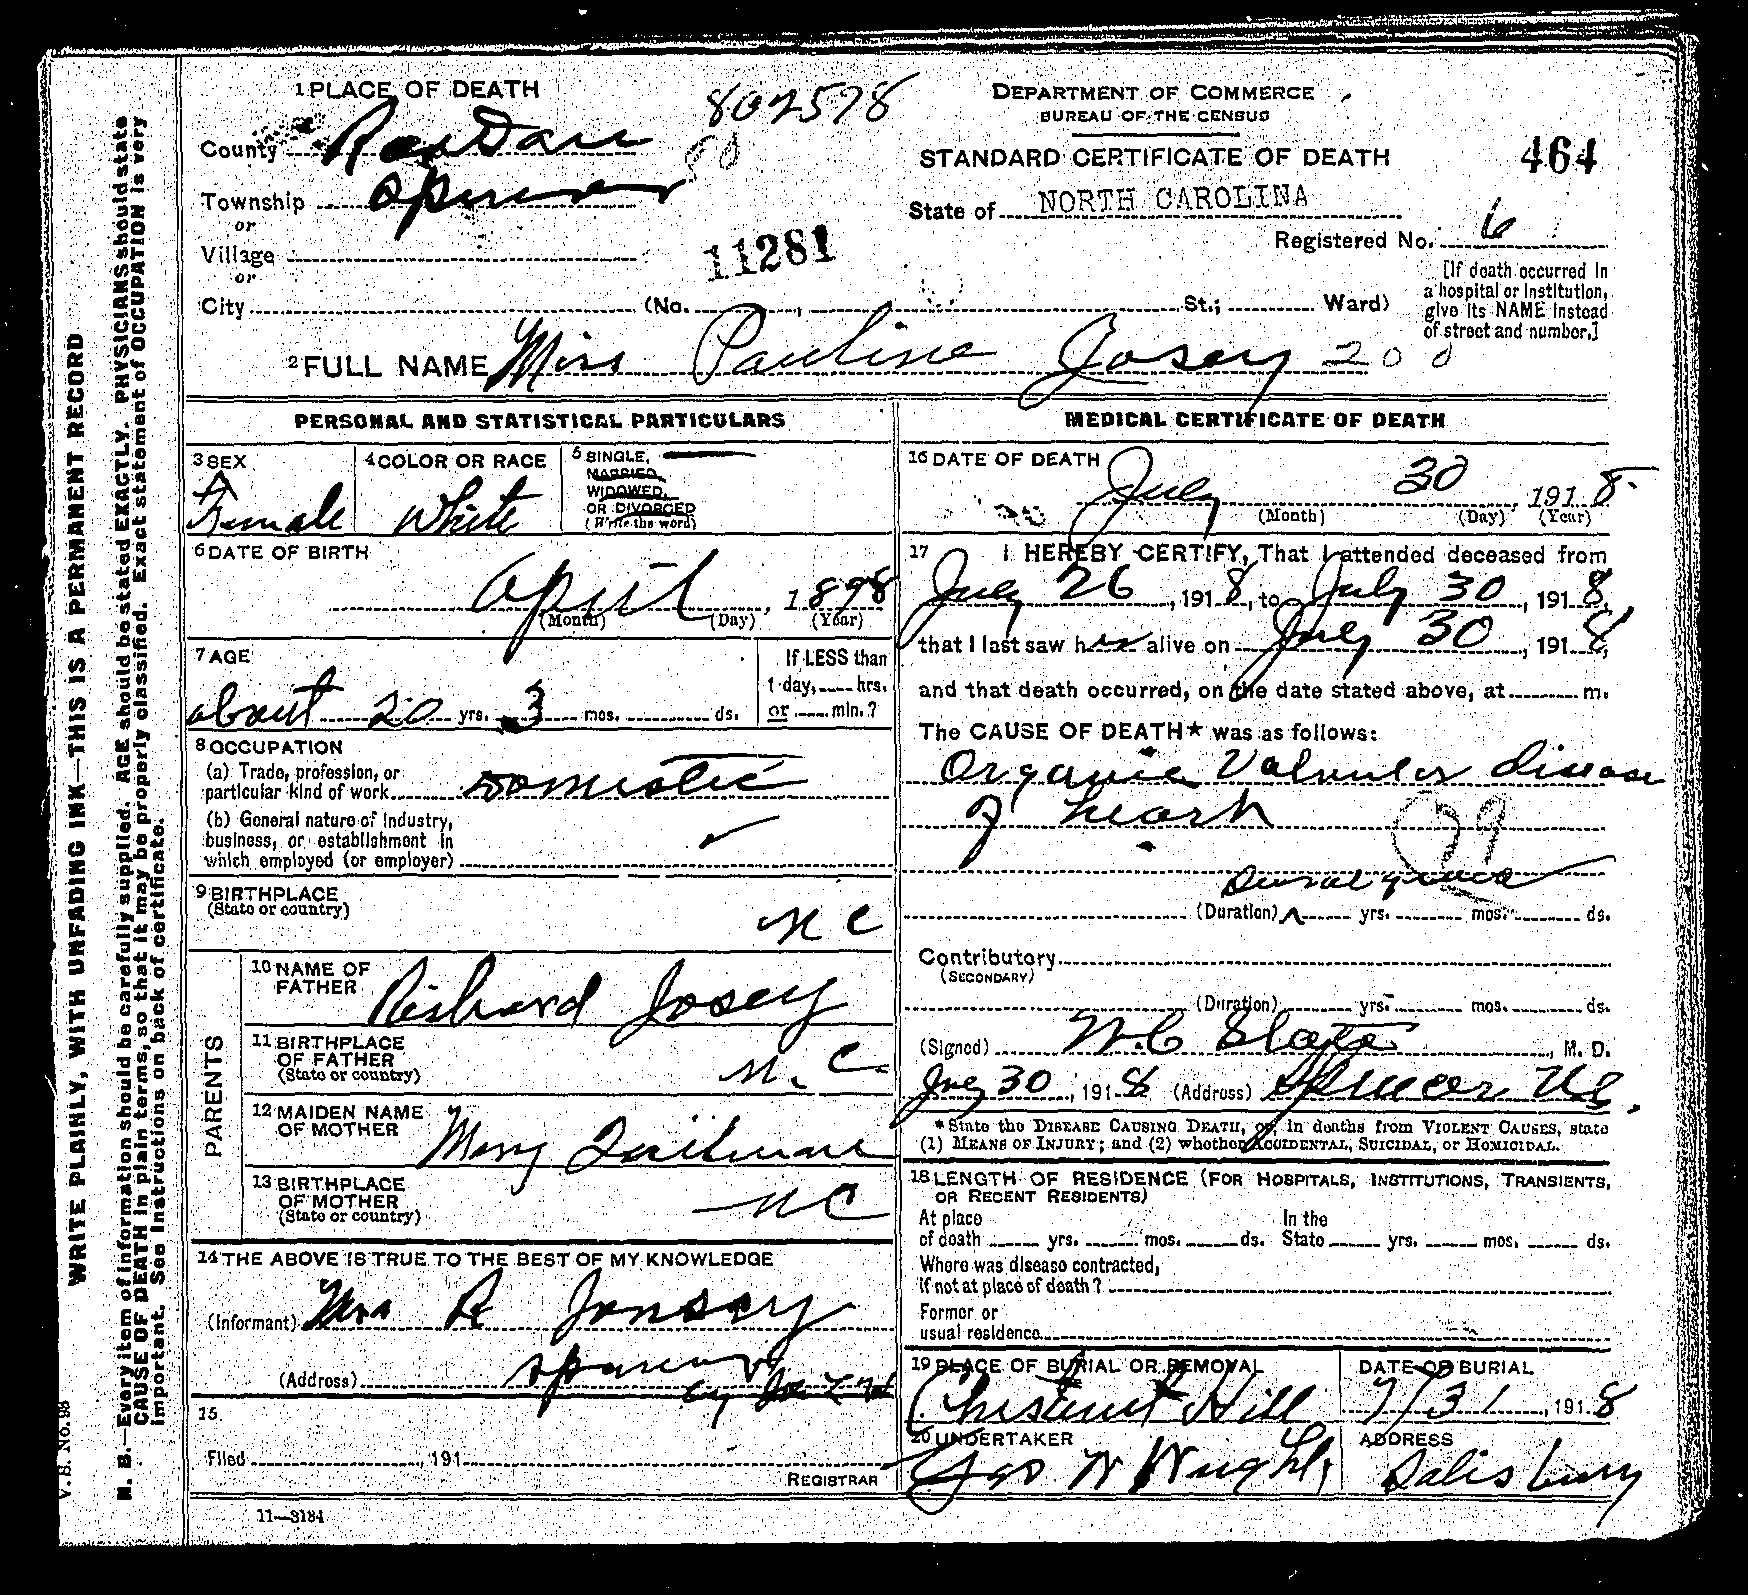 1 PLACE OF DEATH
807578
County Rowan
Township Spencer
or
Village
or
11281
City (No. , St.; Ward)
DEPARTMENT OF COMMERCE
BUREAU OF THE CENSUS
STANDARD CERTIFICATE OF DEATH
464
State of NORTH CAROLINA
Registered No. 6
[If death occurred in
a hospital or institution,
give its NAME instead
of street and number.]
2 FULL NAME Miss Pauline Josey 200
PERSONAL AND STATISTICAL PARTICULARS
3 SEX
Female
4 COLOR OR RACE
White
5 SINGLE,
MARRIED,
WIDOWED,
OR DIVORCED
(Write the word)
6 DATE OF BIRTH
April , 1898
(Month) (Day) (Year)
7 AGE
about 20 yrs. 3 mos. ds.
If LESS than
1 day, hrs.
or min.?
8 OCCUPATION
(a) Trade, profession, or
particular kind of work Domestic
(b) General nature of industry,
business, or establishment in
which employed (or employer)
9 BIRTHPLACE
(State or country)
N C
PARENTS
10 NAME OF
FATHER Richard Josey
11 BIRTHPLACE
OF FATHER
(State or country) N. C.
12 MAIDEN NAME
OF MOTHER Mary
13 BIRTHPLACE
OF MOTHER
(State or country) N C
14 THE ABOVE IS TRUE TO THE BEST OF MY KNOWLEDGE
(Informant) Mrs R Jonsey
(Address) Spencer
by
15
Filed , 191
REGISTRAR
11—3184
MEDICAL CERTIFICATE OF DEATH
16 DATE OF DEATH
July 30 , 1918.
(Month) (Day) (Year)
17 I HEREBY CERTIFY, That I attended deceased from
July 26 , 1918, to July 30 , 1918,
that I last saw her alive on July 30 , 1918,
and that death occurred, on the date stated above, at m.
The CAUSE OF DEATH* was as follows:
Organic Valvular disease
of heart
79
Several years
(Duration) yrs. mos. ds.
Contributory
(SECONDARY)
(Duration) yrs. mos. ds.
(Signed) W.C. , M. D.
July 30 , 1918 (Address) Spencer NC.
*State the DISEASE CAUSING DEATH, or, in deaths from VIOLENT CAUSES, state
(1) MEANS OF INJURY; and (2) whether ACCIDENTAL, SUICIDAL, or HOMICIDAL.
18 LENGTH OF RESIDENCE (FOR HOSPITALS, INSTITUTIONS, TRANSIENTS,
OR RECENT RESIDENTS)
At place In the
of death yrs. mos. ds. State yrs. mos. ds.
Where was disease contracted,
if not at place of death?
Former or
usual residence
19 PLACE OF BURIAL OR REMOVAL
Chestnut Hill
DATE OF BURIAL
7/31 , 1918
20 UNDERTAKER
Geo W Wright
ADDRESS
Salisbury
WRITE PLAINLY, WITH UNFADING INK—THIS IS A PERMANENT RECORD
N. B.—Every item of information should be carefully supplied. AGE should be stated EXACTLY. PHYSICIANS should state
CAUSE OF DEATH in plain terms, so that it may be properly classified. Exact statement of OCCUPATION is very
important. See instructions on back of certificate.
V. S. No. 98